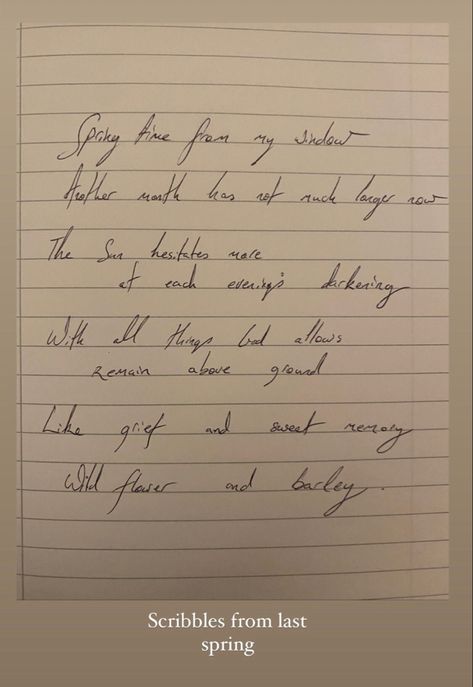 Spring time from my window
Another month has not much longer now
The Sun hesitates more
at each evening's darkening
With all things God allows
Remain above ground
Like grief and sweet memory
Wild flower and barley.
Scribbles from last
spring